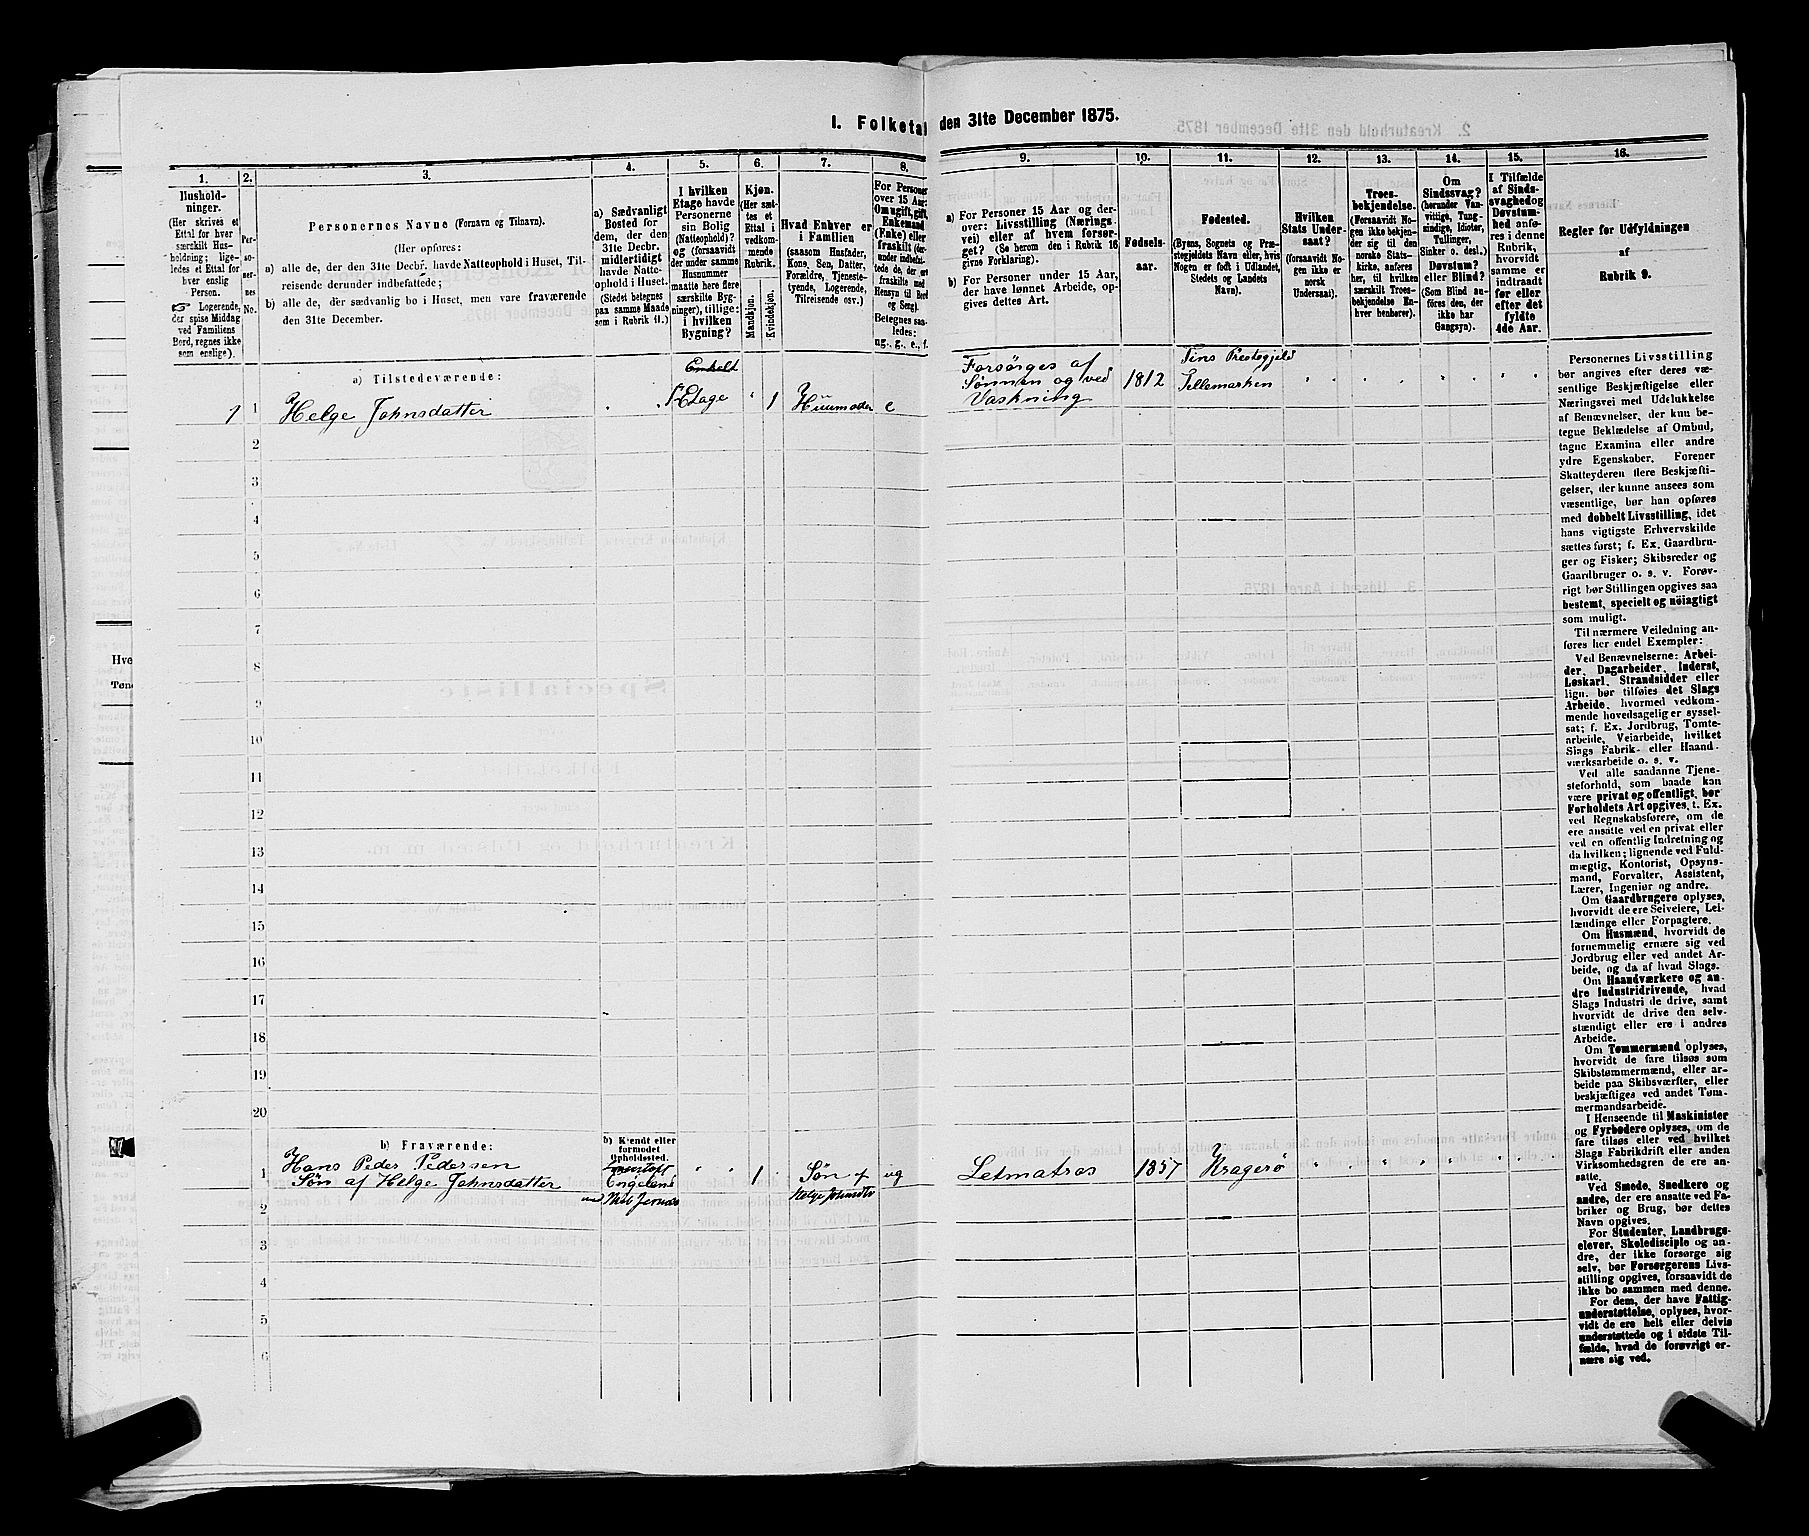 I. Folketal den 31te December 1875.
1.
Hushold-
ninger.
(Her skrives et
Ettal for hver
særskilt Hus-
holdning; lige-
ledes et Ettal for
hver enslig
Person.
Logerende,
der spise Middag
ved Familiens
Bord, regnes ikke
som enslige).
2.
Per-
soner-
nes
No.
3.
Personernes Navne (Fornavn og Tilnavn).
(Her opføres:
a) alle de, der den 31te Decbr. havde Natteophold i Huset, Til-
reisende derunder indbefattede;
b) alle de, der sædvanlig bo i Huset, men vare fraværende
den 31te December.
4.
a) Sædvanligt
Bosted for
dem, der den
31te Decbr.
midlertidigt
havde Natte-
ophold i Huset.
(Stedet betegnes
paa samme Maade
som i Rubrik 11.)
5.
I hvilken
Etage havde
Personerne
sin Bolig
(Natteophold)?
og (forsaavidt
der under samme
Husnummer
maatte høre flere
særskilte Byg-
ninger), tillige:
i hvilken
Bygning?
6.
Kjøn.
(Her sæt-
tes et
Ettal i
vedkom-
mende
Rubrik.
Mandkjøn.
Kvindekjøn.
7.
Hvad Enhver er
i Familien
(saasom Husfader,
Kone, Søn, Datter,
Forældre, Tjeneste-
tyende, Logerende,
Tilreisende osv.)
8.
For Personer
over 15 Aar:
Om ugift, gift,
Enkemand
(Enke) eller
fraskilt (der-
under indbefat-
tede de, der ere
fraskilte med
Hensyn til Bord
og Seng).
Betegnes saa-
ledes:
ug., g., e., f.
9.
a) For Personer 15 Aar og der-
over: Livsstilling (Nærings-
vei) eller af hvem forsør-
get? (Se herom den i Rubrik 16
givne Forklaring).
b) For Personer under 15 Aar,
der have lønnet Arbeide, op-
gives dettes Art.
10.
Fødsels-
aar.
11.
Fødested.
(Byens, Sognets og Præ-
stegjeldets Navn eller, hvis
Nogen er født i Udlandet,
Stedets og Landets
Navn).
12.
Hvilken
Stats Under-
saat?
(forsaavidt No-
gen ikke er
norsk
Undersaat).
13.
Troes-
bekjendelse.
(Forsaavidt No-
gen ikke bekjen-
der sig til den
norske Stats-
kirke, anføres
her, til hvilken
særskilt Troes-
bekjendelse En-
hver henhører).
14.
Om
Sindssvag?
(herunder Van-
vittige, Tung-
sindige, Idioter,
Tullinger,
Sinker o. desl.)
Døvstum?
eller Blind?
(Som Blind an-
føres den, der
ikke har
Gangsyn).
15.
I Tilfælde
af Sinds-
svaghed og
Døvstum-
hed anfø-
res i denne
Rubrik,
hvorvidt
samme er
indtraadt
før eller
efter det
fyldte
4de Aar.
16.
Regler for Udfyldningen
af
Rubrik 9.
a) Tilstedeværende:
1 1 Helge Johnsdatter
Enkelt
Etage
" 1
Huusmoder e
Forsørges af
Sønnen og ved
Vaskning
1812
Tins Prestegjeld
Tellemarken
2
3
4
5
6
7
8
9
10
11
12
13
14
15
16
17
18
19
20
b) Fraværende:
b) Kjendt eller
formodet
Opholdssted.
1 Hans Peder Pedersen
Søn af Helge Johnsdatter
Engeland
1
Søn af
Helge Johnsdtr
ug
Letmatros 1857 Kragerø
2
3
4
5
6
Personernes Livsstilling
bør angives efter deres væ-
sentlige Beskjæftigelse eller
Næringsvei med Udelukkelse
af Benævnelser, der kun be-
tegne Beklædelse af Ombud,
tagne Examina eller andre
ydre Egenskaber. Forener
Skatteyderen flere Beskjæfti-
gelser, der kunne ansees som
væsentlige, bør han opføres
med dobbelt Livsstilling, idet
hans vigtigste Erhvervskilde
sættes først; f. Ex. Gaardbru-
ger og Fisker; Skibsreder og
Gaardbruger o. s. v. Forøv-
rigt bør Stillingen opgives saa
bestemt, specielt og nöiagtigt
som muligt.
Til nærmere Veiledning an-
føres her endel Exempler:
Ved Benævnelserne: Arbei-
der, Dagarbeider, Inderst,
Løskarl, Strandsidder eller
lign. bør tilføies det Slags
Arbeide, hvormed vedkom-
mende hovedsagelig er syssel-
sat; f. Ex. Jordbrug, Tomte-
arbeide, Veiarbeide, hvilket
Slags Fabrik- eller Haand-
værksarbeide o. s. v.
Ved alle saadanne Tjene-
steforhold, som baade kan
være privat og offentligt, bør
Forholdets Art opgives, t. Ex.
ved Regnskabsførere, om de
ere ansatte ved en privat eller
ved en offentlig Indretning og
da hvilken; lignende ved Fuld-
mægtig, Kontorist, Opsyns-
mand, Forvalter, Assistent,
Lærer, Ingeniør og andre.
Om Gaardbrugere oplyses,
hvorvidt de ere Selveiere, Lei-
lændinge eller Forpagtere.
Om Husmænd, hvorvidt de
fornemmelig ernære sig ved
Jordbrug eller ved andet Ar-
beide, og da af hvad Slags.
Om Haandværkere og an-
dre Industridrivende, hvad
Slags Industri de drive, samt
hvorvidt de drive den selv-
stændigt eller ere i andres
Arbeide.
Om Tømmermænd oplyses,
hvorvidt de fare tilsøs som
Skibstømmermænd, eller ar-
beide paa Skibsværfter, eller
beskjæftiges ved andet Tøm-
mermandsarbeide.
I Henseende til Maskinister
og Fyrbødere oplyses, om de
fare tilsøs eller ved hvilket
Slags Fabrikdrift eller anden
Virksomhedsgren de ere an-
satte.
Ved Smede, Snedkere og
andre, der ere ansatte ved Fa-
briker og Brug, bør dettes
Navn opgives.
For Studenter, Landbrugs-
elever, Skoledisciple og an-
dre, der ikke forsørge sig
selv, bør Forsørgerens Livs-
stilling opgives, forsaavidt de
ikke bo sammen med denne.
For dem, der have Fattig-
understøttelse, oplyses, hvor-
vidt de ere helt eller delvis
understøttede og i sidste Til-
fælde, hvad de forøvrigt er-
nære sig ved.